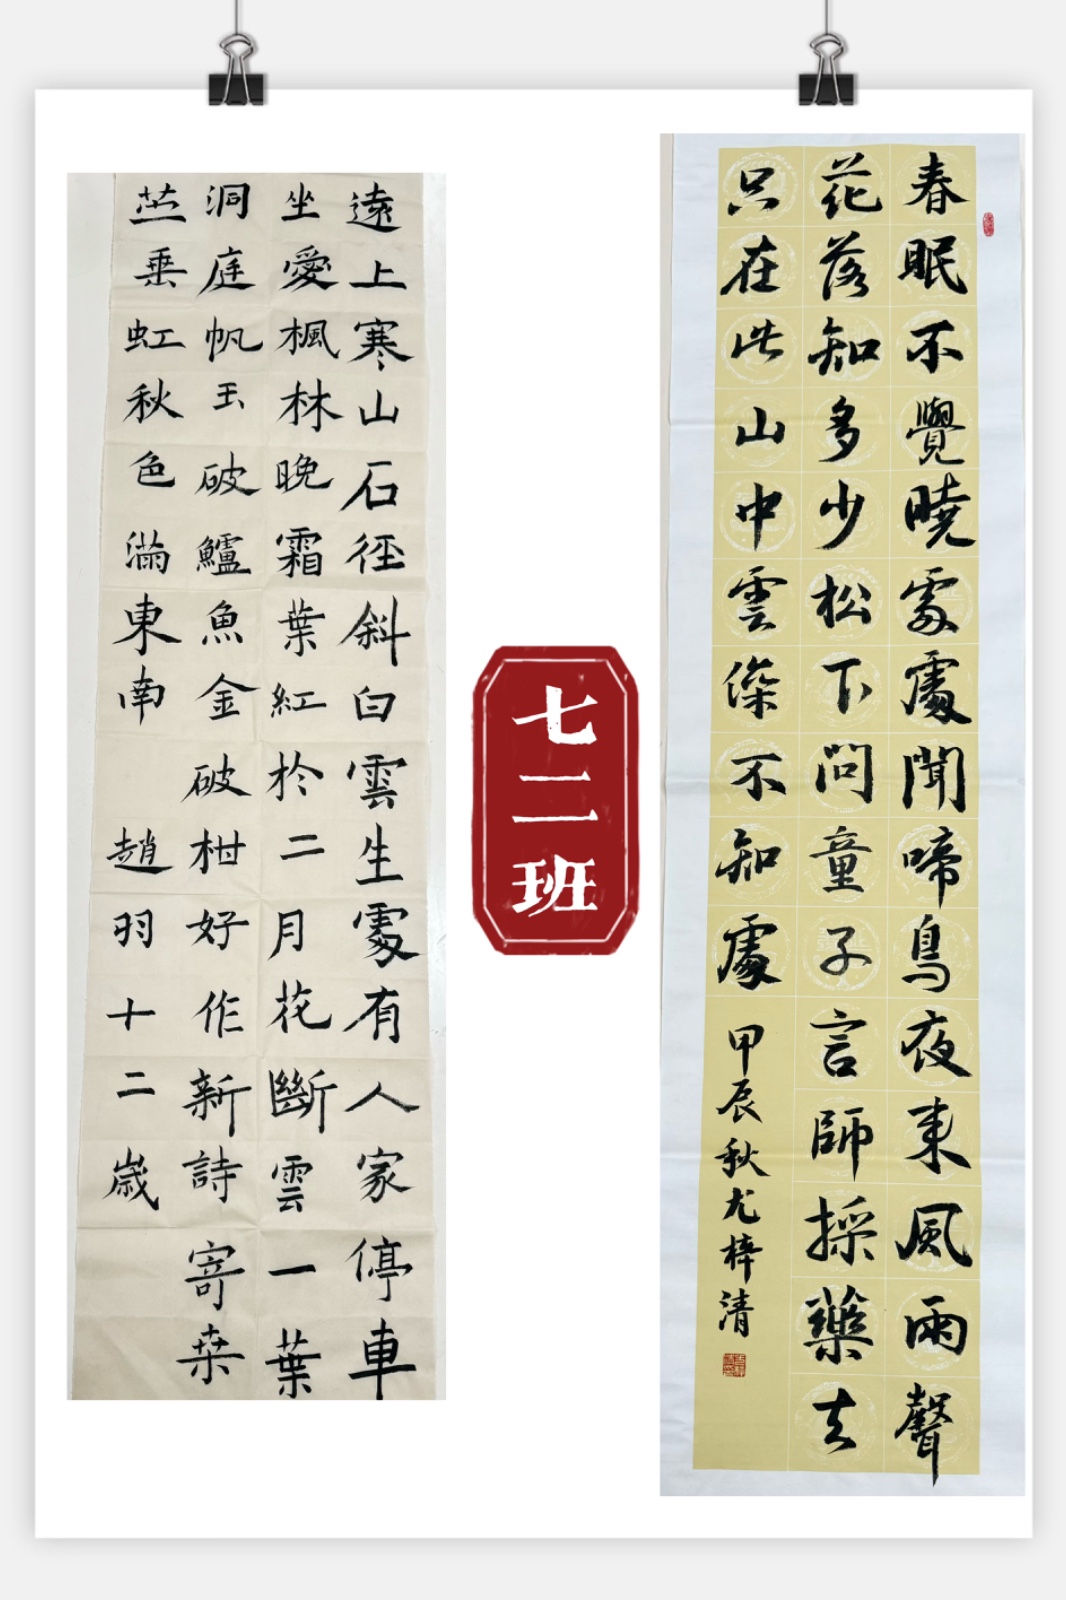 遠上寒山石径斜白雲生處有人家停車
坐愛楓林晚霜葉紅於二月花斷雲一葉
洞庭帆玉破鱸魚金破柑好作新詩寄桑
苎垂虹秋色滿東南 趙羽十二歲
七二班
春眠不覺曉處處聞啼鳥夜来風雨聲
花落知多少松下問童子言師採藥去
只在此山中雲深不知處 甲辰秋尤梓清